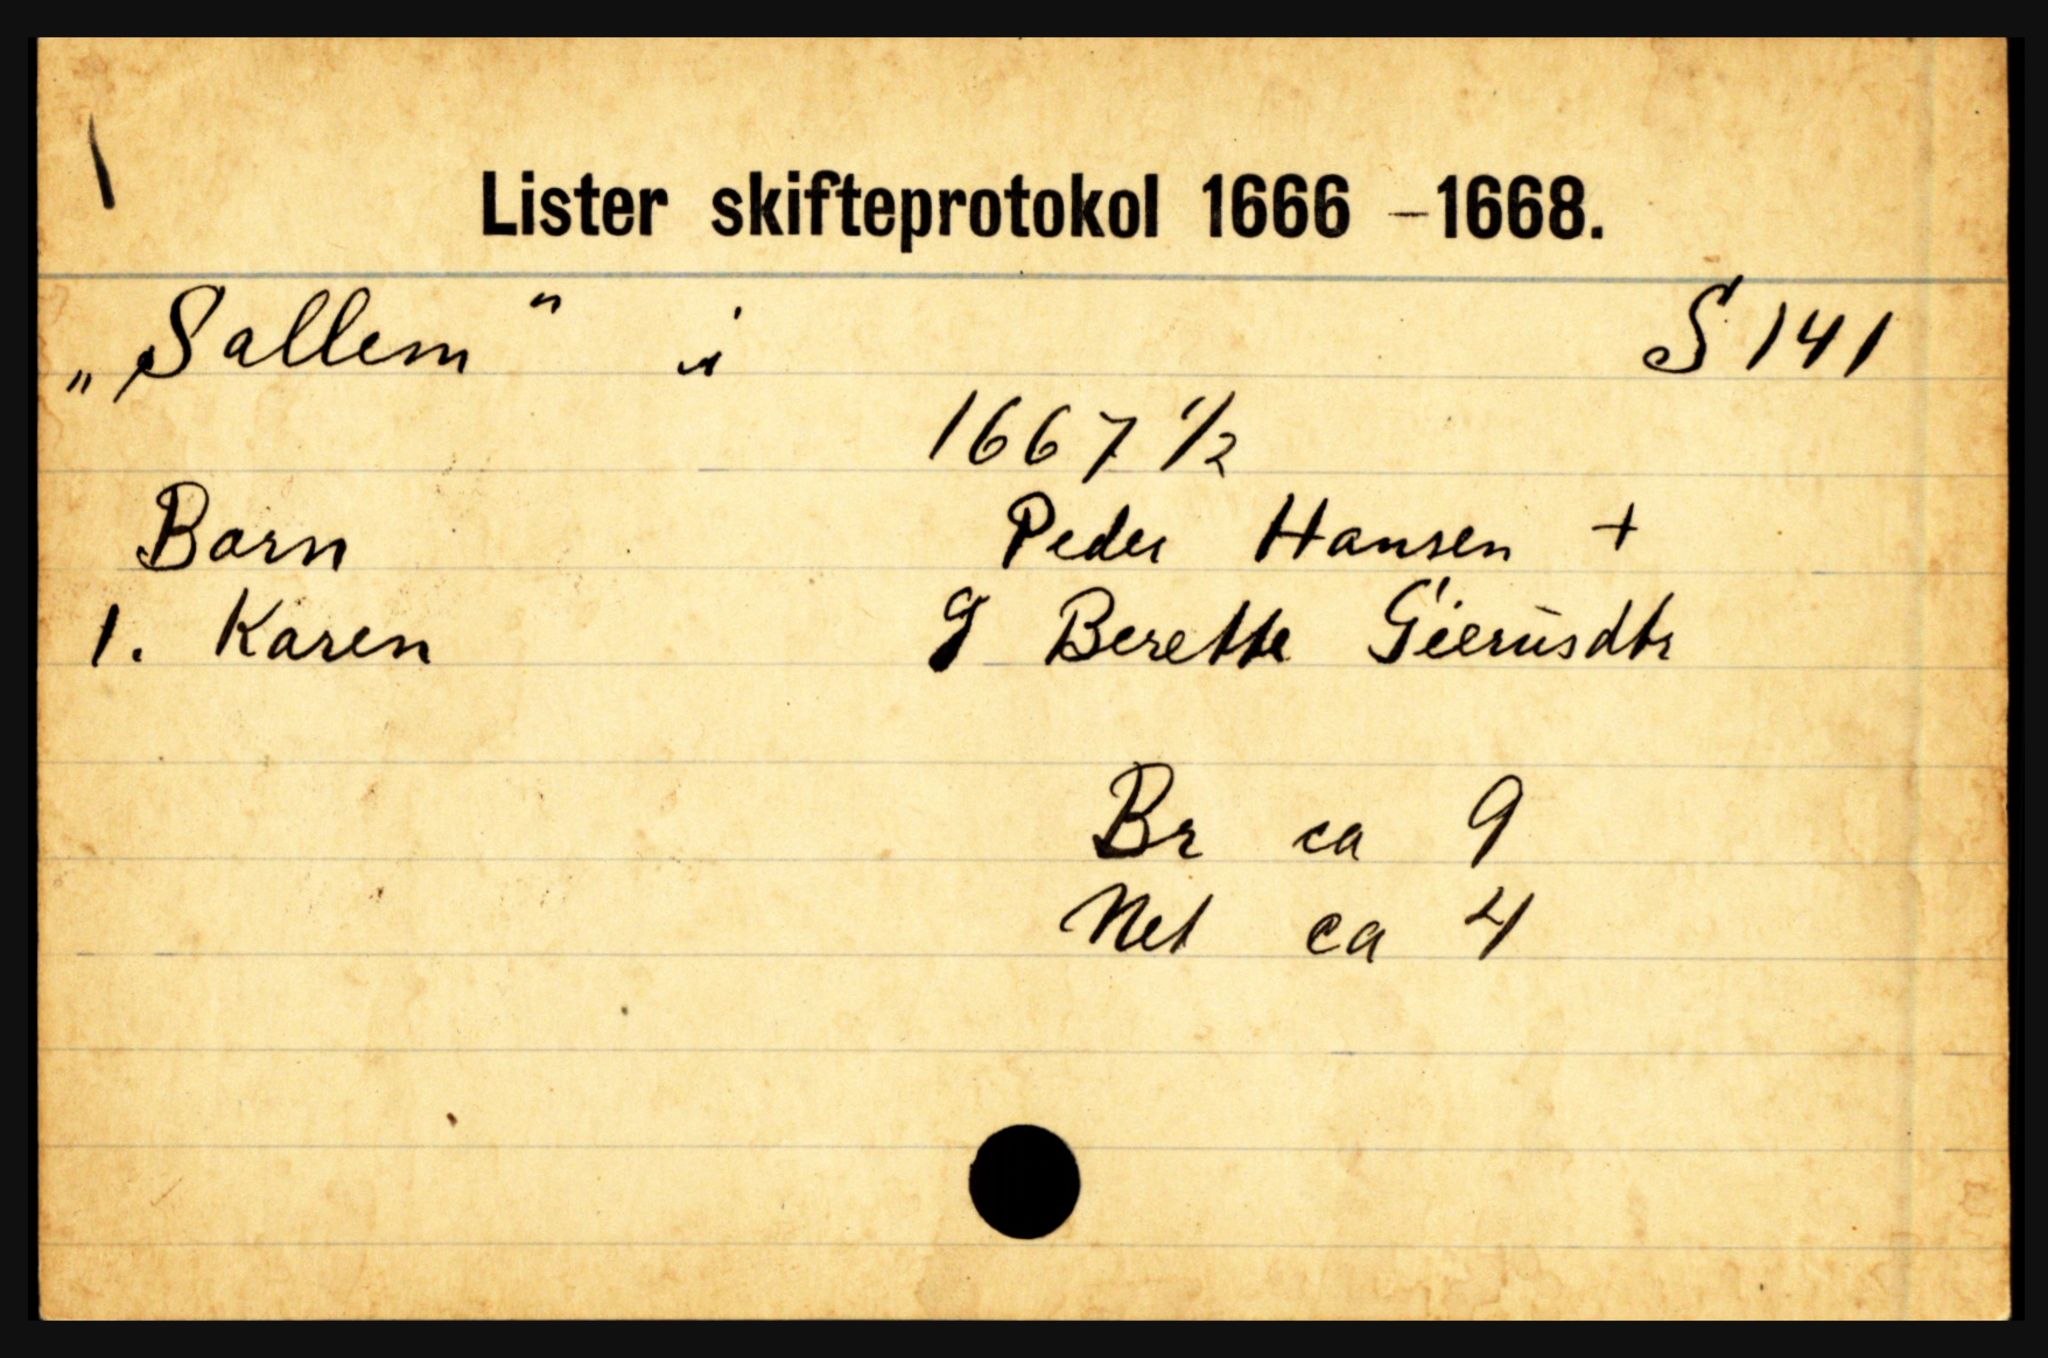 Lister skifteprotokol 1666 – 1668.
„Sallem" i S 141
1667 1/2
Barn Peder Hansen +
1. Karen g Berette Gierusdtr
Br ca 9
Net ca 4